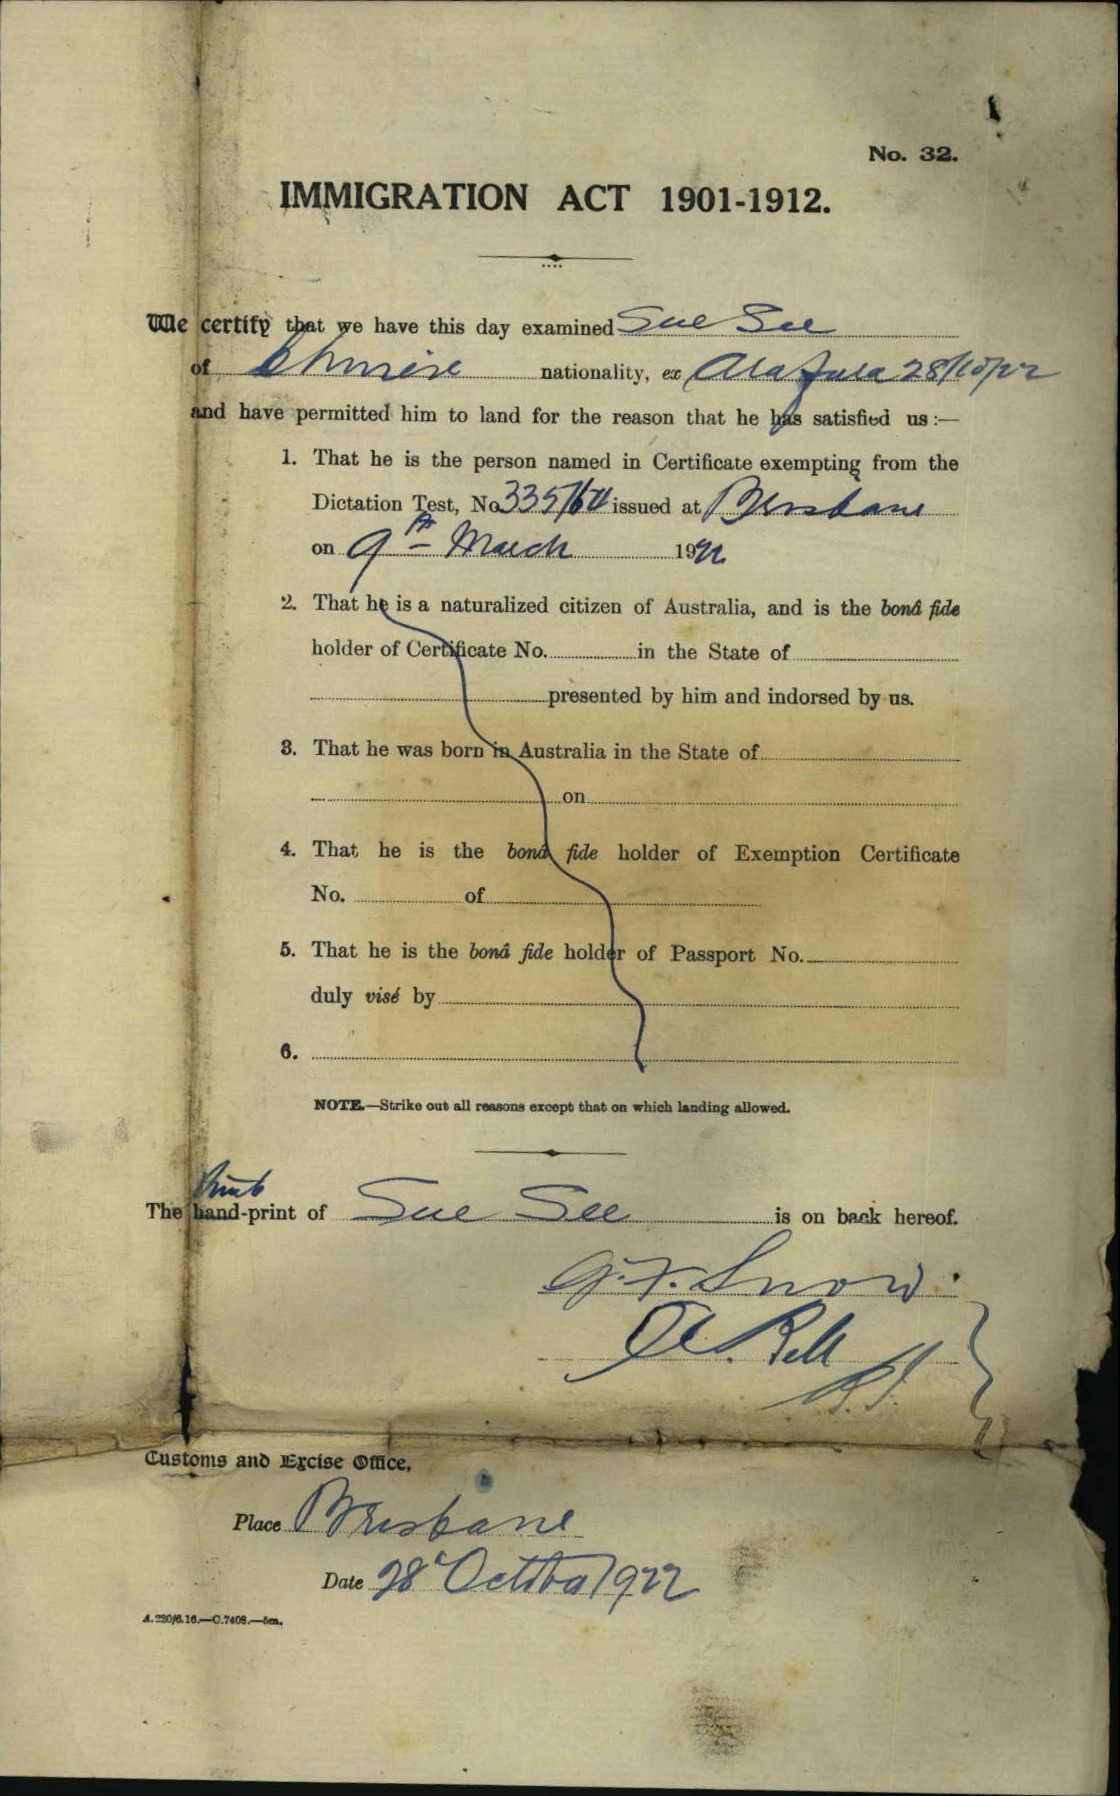 No. 32.
IMMIGRATION ACT 1901-1912.
We certify that we have this day examined Sue See
of Chinese nationality, ex Arafura 28/10/22
and have permitted him to land for the reason that he has satisfied us :—
1. That he is the person named in Certificate exempting from the
Dictation Test, No. 335/60 issued at Brisbane
on 9th March 1922
2. That he is a naturalized citizen of Australia, and is the bonâ fide
holder of Certificate No. in the State of
presented by him and indorsed by us.
3. That he was born in Australia in the State of
on
4. That he is the bonâ fide holder of Exemption Certificate
No. of
5. That he is the bonâ fide holder of Passport No.
duly visé by
6.
NOTE.—Strike out all reasons except that on which landing allowed.
The hand-print of Sue See is on back hereof.
Snow
Bell
Customs and Excise Office,
Place Brisbane
Date 28 October 1922
A.220/6.16.—C.7408.—5m.